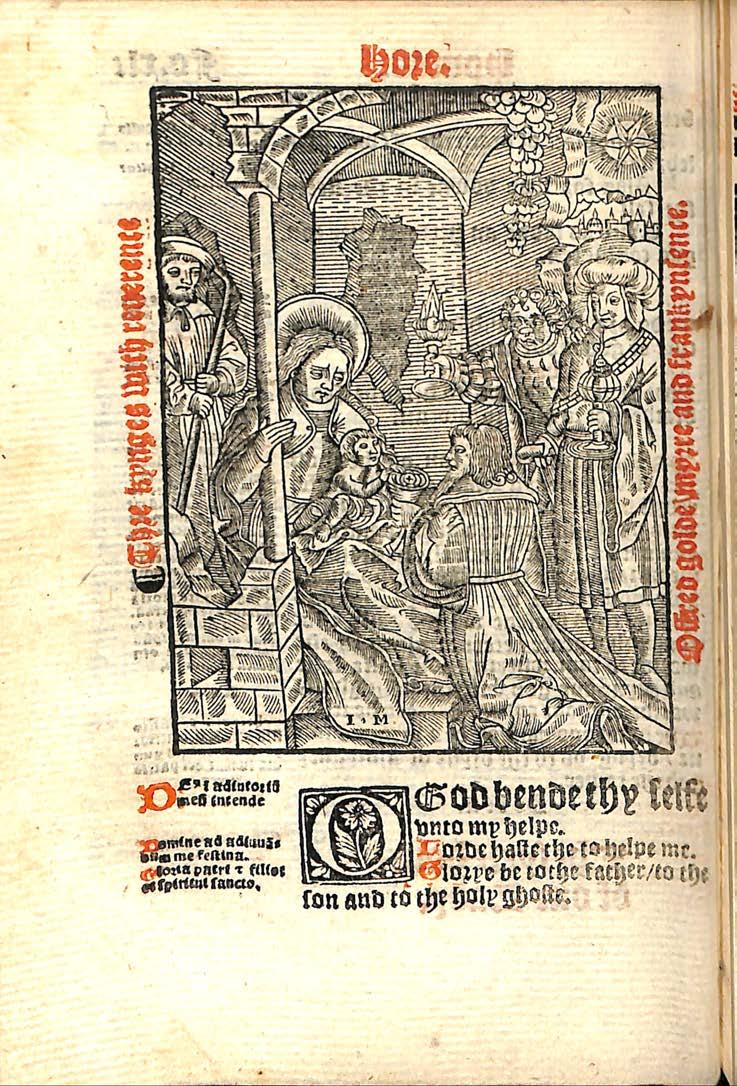 Hore.
Thre kynges with reuerence
Offred golde / myrre and frankynsence.
I. M
DEꝰ i adiutoriū
meū intende
Domine ad adiuuā-
dum me festina.
Gloria patri ⁊ filio:
et spiritui sancto.
O God bende thy selfe
vnto my helpe.
Lorde haste the to helpe me.
Glorye be to the father / to the
son and to the holy ghoste.